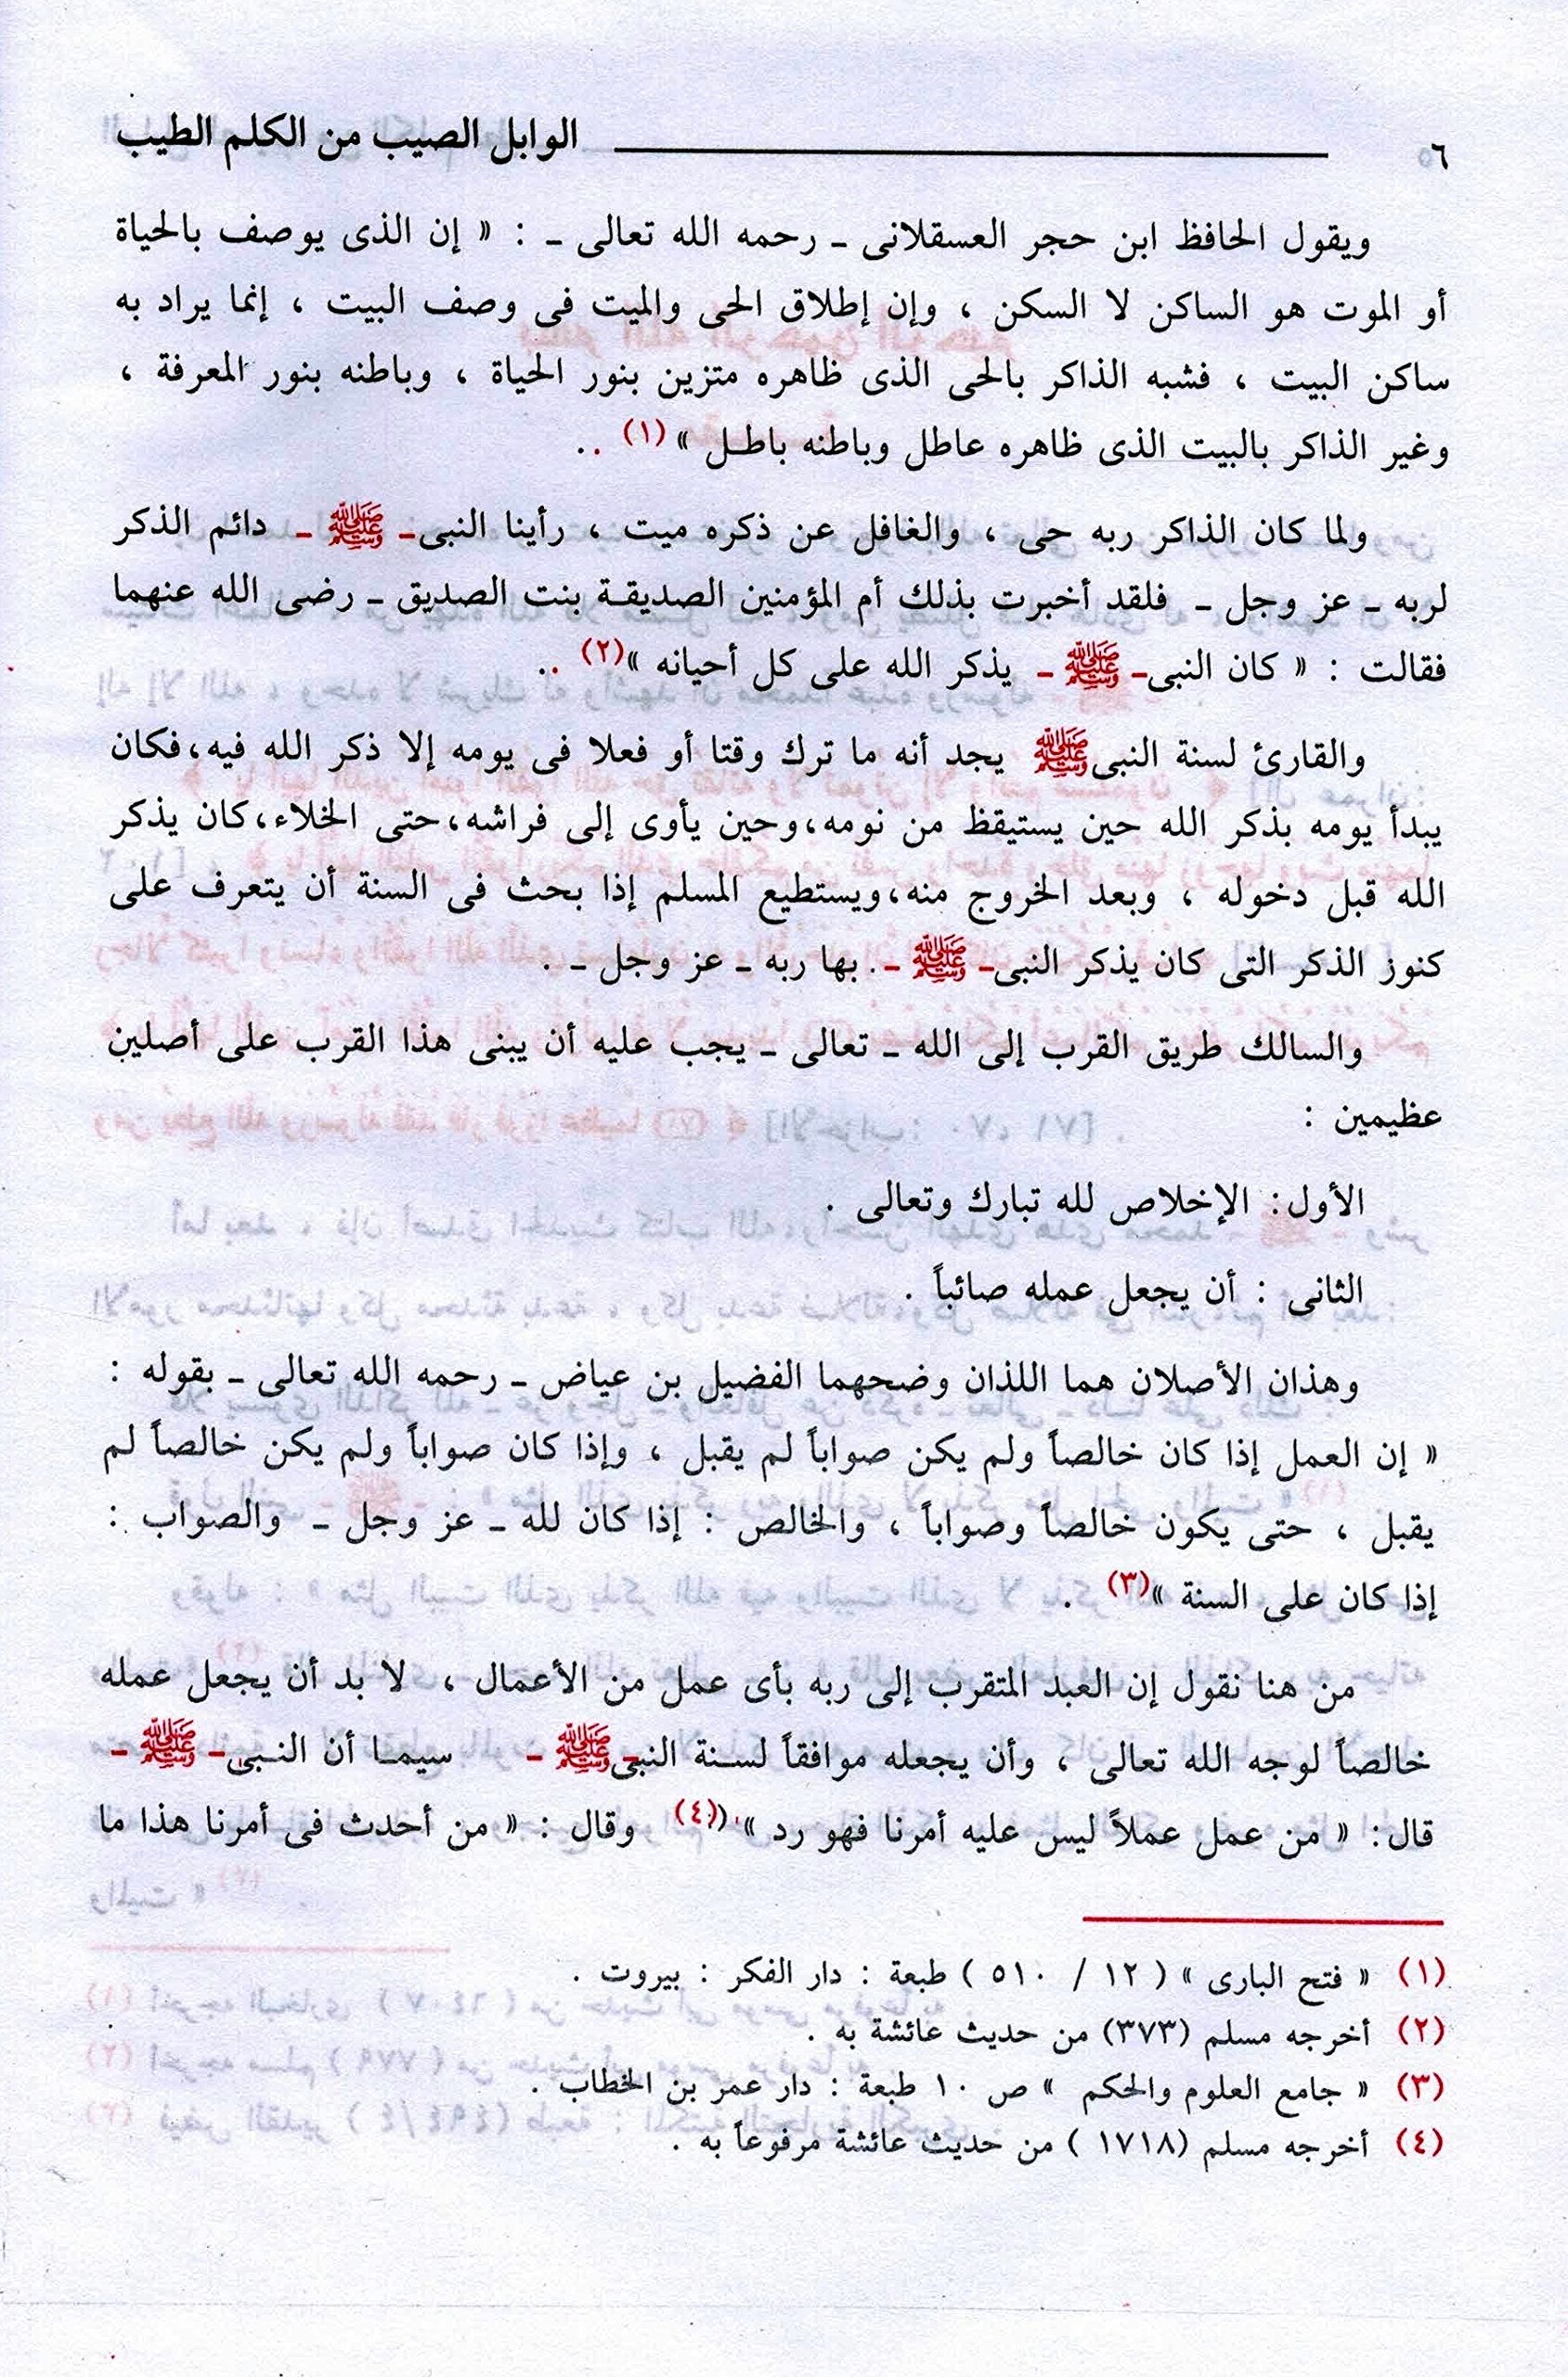 ٦ الوابل الصيب من الكلم الطيب
ويقول الحافظ ابن حجر العسقلانى ـ رحمه الله تعالى ـ : « إن الذى يوصف بالحياة
أو الموت هو الساكن لا السكن ، وإن إطلاق الحى والميت فى وصف البيت ، إنما يراد به
ساكن البيت ، فشبه الذاكر بالحى الذى ظاهره متزين بنور الحياة ، وباطنه بنور المعرفة ،
وغير الذاكر بالبيت الذى ظاهره عاطل وباطنه باطل » (١) ..
ولما كان الذاكر ربه حى ، والغافل عن ذكره ميت ، رأينا النبى ـ ﷺ ـ دائم الذكر
لربه ـ عز وجل ـ فلقد أخبرت بذلك أم المؤمنين الصديقة بنت الصديق ـ رضى الله عنهما
فقالت : « كان النبى ـ ﷺ ـ يذكر الله على كل أحيانه »(٢) ..
والقارئ لسنة النبى ﷺ يجد أنه ما ترك وقتا أو فعلا فى يومه إلا ذكر الله فيه،فكان
يبدأ يومه بذكر الله حين يستيقظ من نومه،وحين يأوى إلى فراشه،حتى الخلاء،كان يذكر
الله قبل دخوله ، وبعد الخروج منه،ويستطيع المسلم إذا بحث فى السنة أن يتعرف على
كنوز الذكر التى كان يذكر النبى ـ ﷺ ـ. بها ربه ـ عز وجل ـ .
والسالك طريق القرب إلى الله ـ تعالى ـ يجب عليه أن يبنى هذا القرب على أصلين
عظيمين :
الأول: الإخلاص لله تبارك وتعالى .
الثانى : أن يجعل عمله صائباً .
وهذان الأصلان هما اللذان وضحهما الفضيل بن عياض ـ رحمه الله تعالى ـ بقوله :
« إن العمل إذا كان خالصاً ولم يكن صواباً لم يقبل ، وإذا كان صواباً ولم يكن خالصاً لم
يقبل ، حتى يكون خالصاً وصواباً ، والخالص : إذا كان لله ـ عز وجل ـ والصواب :
إذا كان على السنة »(٣) .
من هنا نقول إن العبد المتقرب إلى ربه بأى عمل من الأعمال ، لا بد أن يجعل عمله
خالصاً لوجه الله تعالى ، وأن يجعله موافقاً لسنة النبى ـ ﷺ ـ سيما أن النبى ـ ﷺ ـ
قال: « من عمل عملاً ليس عليه أمرنا فهو رد »(٤) وقال : « من أحدث فى أمرنا هذا ما
(١) « فتح البارى » ( ١٢ / ٥١٠ ) طبعة : دار الفكر : بيروت .
(٢) أخرجه مسلم (٣٧٣) من حديث عائشة به .
(٣) « جامع العلوم والحكم » ص ١٠ طبعة : دار عمر بن الخطاب .
(٤) أخرجه مسلم (١٧١٨ ) من حديث عائشة مرفوعاً به .